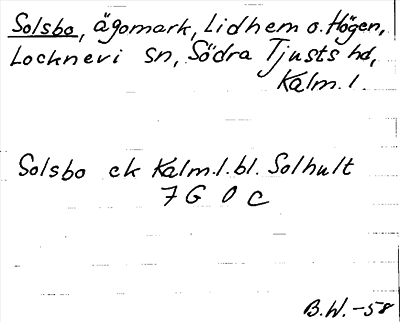 Solsbo, ägomark, Lidhem o. Högen,
Locknevi sn, Södra Tjusts hd,
Kalm. l.
Solsbo ek Kalm. l. bl. Solhult
7 G 0 c
B.W. -58